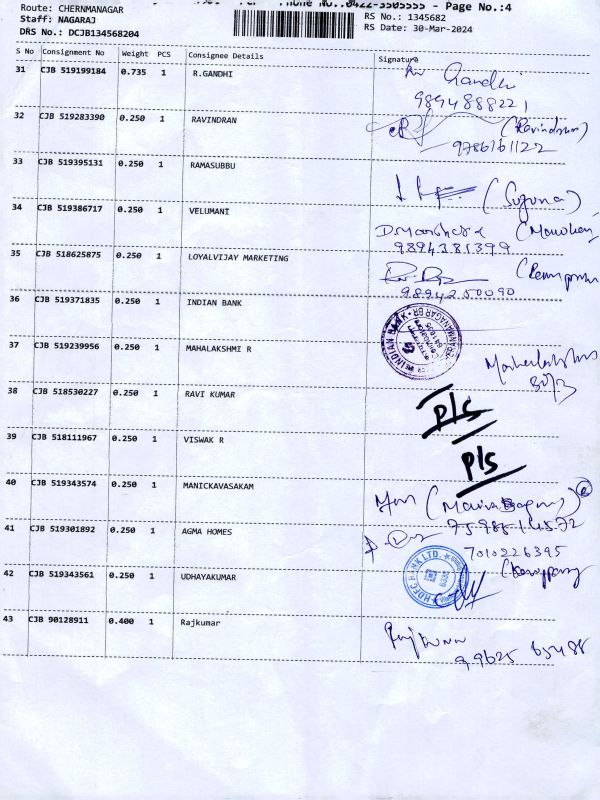 Route: CHERNMANAGAR
Phone No.:0422-3505555 - Page No.:4
Staff: NAGARAJ
RS No.: 1345682
DRS No.: DCJB134568204
RS Date: 30-Mar-2024
S No Consignment No Weight PCS Consignee Details Signature
31 CJB 519199184 0.735 1 R.GANDHI Gandhi
9894888221
32 CJB 519283390 0.250 1 RAVINDRAN (Ravindran)
9786161122
33 CJB 519395131 0.250 1 RAMASUBBU
(Suguna)
34 CJB 519386717 0.250 1 VELUMANI
9894381399
35 CJB 518625875 0.250 1 LOYALVIJAY MARKETING
9894250090
36 CJB 519371835 0.250 1 INDIAN BANK INDIAN BANK
37 CJB 519239956 0.250 1 MAHALAKSHMI R
38 CJB 518530227 0.250 1 RAVI KUMAR P/S
39 CJB 518111967 0.250 1 VISWAK R P/S
40 CJB 519343574 0.250 1 MANICKAVASAKAM
41 CJB 519301892 0.250 1 AGMA HOMES
7010226395
42 CJB 519343561 0.250 1 UDHAYAKUMAR HDFC BANK LTD.
43 CJB 90128911 0.400 1 Rajkumar Rajkumar
99625 65488